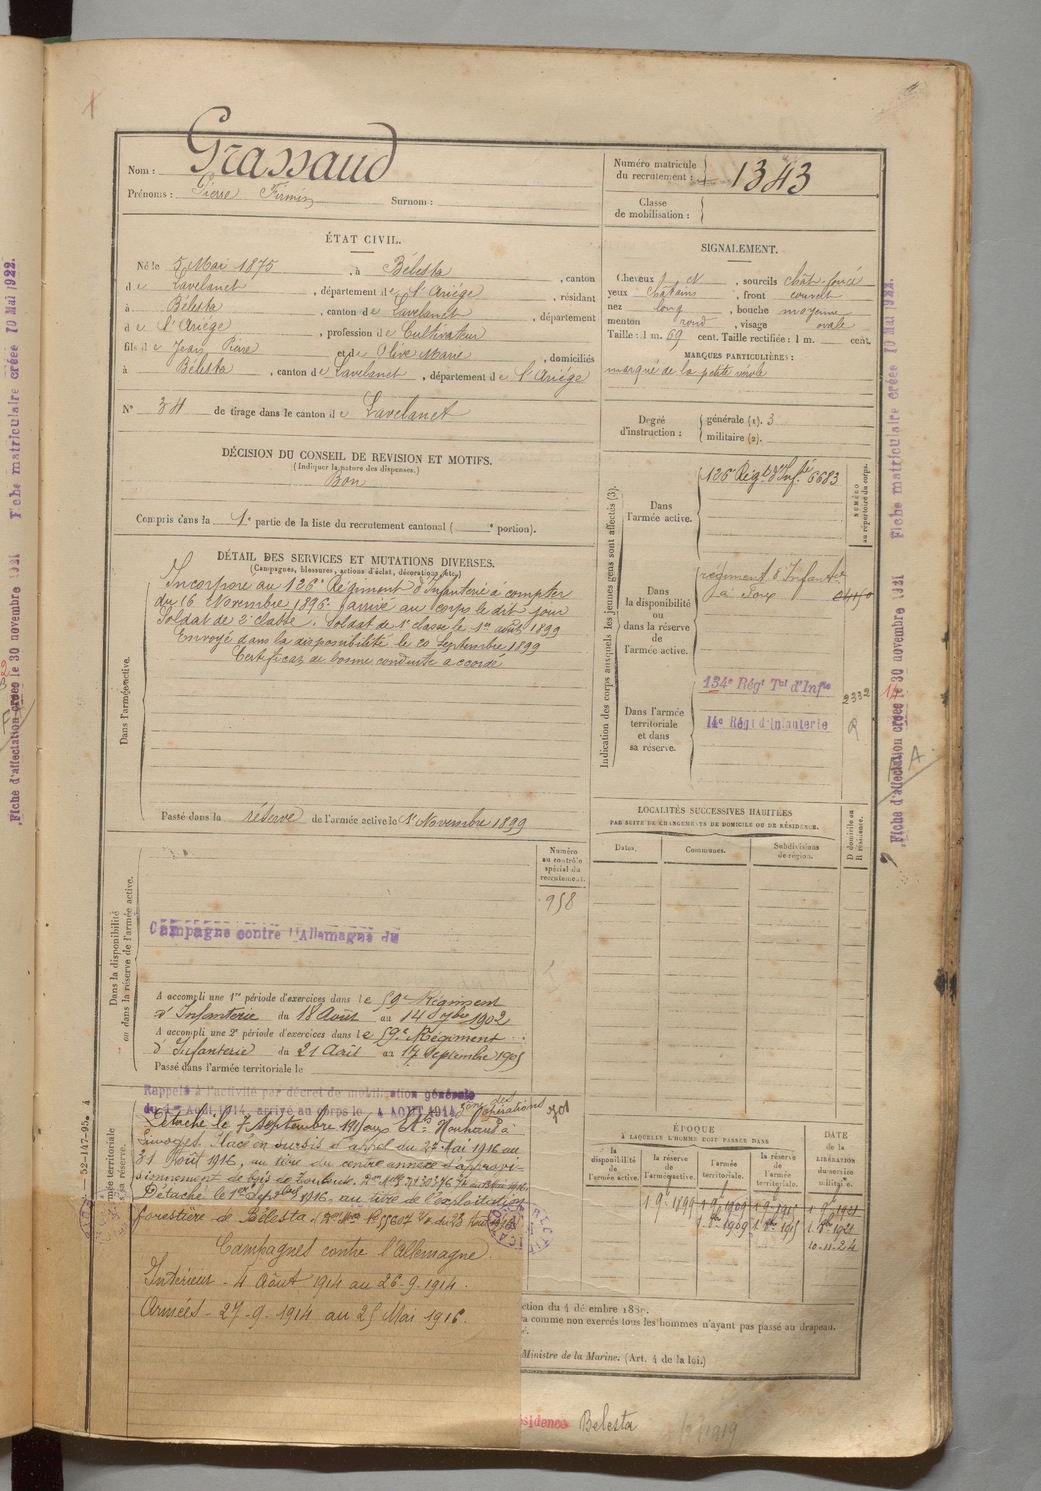 Nom : Grassaud
Prénoms : Pierre Firmin Surnom :
Numéro matricule
du recrutement : 1343
Classe
de mobilisation :
ÉTAT CIVIL.
Né le 5 Mai 1875, à Bélesta, canton
de Lavelanet, département de l'Ariége, résidant
à Bélesta, canton de Lavelanet, département
de l'Ariége, profession de Cultivateur
fils de Jean Pierre et de Olive Marie, domiciliés
à Bélesta, canton de Lavelanet, département de l'Ariége
N° 34 de tirage dans le canton de Lavelanet
SIGNALEMENT.
Cheveux et, sourcils chât. foncé
yeux chatains, front couvert
nez long, bouche moyenne
menton rond, visage ovale
Taille : 1 m. 69 cent. Taille rectifiée : 1 m. cent.
MARQUES PARTICULIÈRES :
marqué de la petite vérole
Degré
d'instruction :
générale (1). 3
militaire (2).
DÉCISION DU CONSEIL DE REVISION ET MOTIFS.
(Indiquer la nature des dispenses.)
Bon
Compris dans la 1e partie de la liste du recrutement cantonal ( e portion).
DÉTAIL DES SERVICES ET MUTATIONS DIVERSES.
(Campagnes, blessures, actions d'éclat, décorations, etc.)
Dans l'armée active.
Incorporé au 126e Régiment d'Infanterie à compter
du 16 Novembre 1896. arrivé au corps le dit jour
Soldat de 2e classe. Soldat de 1e classe le 1er août 1899
Envoyé dans la disponibilité le 20 Septembre 1899
Certificat de bonne conduite accordé
Passé dans la réserve de l'armée active le 1er Novembre 1899
Indication des corps auxquels les jeunes gens sont affectés (3).
NUMÉRO
au répertoire du corps.
Dans
l'armée active.
126e Régt d'Infie 6683
Dans
la disponibilité
ou
dans la réserve
de
l'armée active.
régiment d'Infanterie
à Foix
Dans l'armée
territoriale
et dans
sa réserve.
134e Régt Tal d'Infie
14e Régt d'Infanterie
2332
LOCALITÉS SUCCESSIVES HABITÉES
PAR SUITE DE CHANGEMENTS DE DOMICILE OU DE RÉSIDENCE.
Dates. Communes. Subdivisions
de région.
D domicile ou
R résidence.
Dans la disponibilité
ou dans la réserve de l'armée active.
Numéro
au contrôle
spécial du
recrutement.
958
Campagne contre l'Allemagne du
A accompli une 1re période d'exercices dans le 59e Régiment
d'Infanterie du 18 Août au 14 7bre 1902
A accompli une 2e période d'exercices dans le 59e Régiment
d'Infanterie du 21 Août au 17 Septembre 1905
Passé dans l'armée territoriale le
Rappelé à l'activité par décret de mobilisation générale
du 1er Août 1914, arrivé au corps le 4 AOUT 1914
Détaché le 7 Septembre 1915 aux Ets
Limoges. Placé en sursis d'appel du 27 Mai 1916 au
31 Août 1916, au titre du centre annexe d'approvi-
sionnement de bois de Toulouse.
Détaché le 1er Septbre 1916, au titre de l'exploitation
forestière de Bélesta.
Campagnes contre l'Allemagne
Intérieur - 4 Août 1914 au 26-9-1914.
Armées - 27-9-1914 au 25 Mai 1916.
ÉPOQUE
À LAQUELLE L'HOMME DOIT PASSER DANS
DATE
de la
LIBÉRATION
du service
militaire.
la
disponibilité
de
l'armée active.
la réserve
de
l'armée active.
l'armée
territoriale.
la réserve
de l'armée
territoriale.
1 9e 1899 1 9e 1909 1 9e 1915 1 9e 1921
1 8bre 1909 1 8bre 1915 1 8bre 1921
10-11-24
ction du 4 décembre 1889.
comme non exercés tous les hommes n'ayant pas passé au drapeau.
Ministre de la Marine. (Art. 4 de la loi.)
sidence Bélesta
52-147-95.
Fiche d'affectation créée le 30 novembre 1921 Fiche matriculaire créée 10 Mai 1922.
Fiche d'affectation créée le 30 novembre 1921 Fiche matriculaire créée 10 Mai 1922.